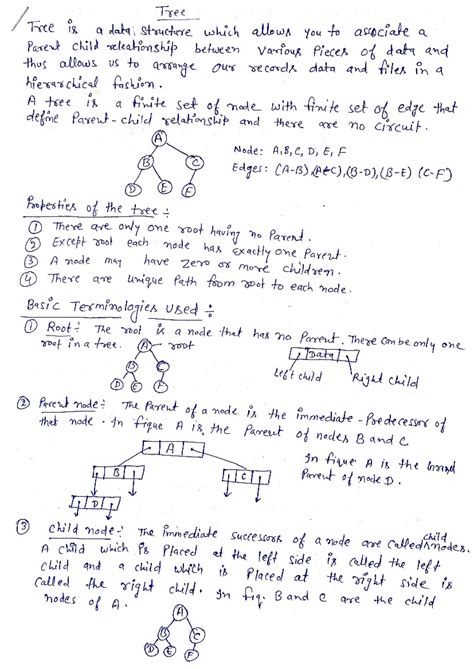 Tree
Tree is a data structure which allows you to associate a
Parent child releationship between various pieces of data and
thus allows us to arrange our records data and files in a
hierarchical fashion.
A tree is a finite set of node with finite set of edge that
define Parent-child relationship and there are no circuit.
A
B C
D E F
Node: A,B,C, D, E, F
Edges: (A-B),(A-C),(B-D),(B-E) (C-F)
Properties of the tree :-
① There are only one root having no Parent.
② Except root each node has exactly one Parent.
③ A node may have zero or more children.
④ There are unique Path from root to each node.
Basic Terminologies used :-
① Root :- The root is a node that has no Parent. There can be only one
root in a tree.
A root
B C
D E F
Data
Left child Right child
② Parent node :- The Parent of a node is the immediate-Predecessor of
that node. In fique A is the Parent of nodes B and C
A
B C
D
In fique A is the
Parent of node D.
③ Child node :- The immediate successors of a node are called child nodes.
A child which is Placed at the left side is called the left
child and a child which is Placed at the right side is
called the right child. In fig. B and C are the child
nodes of A.
A
B C
D E F